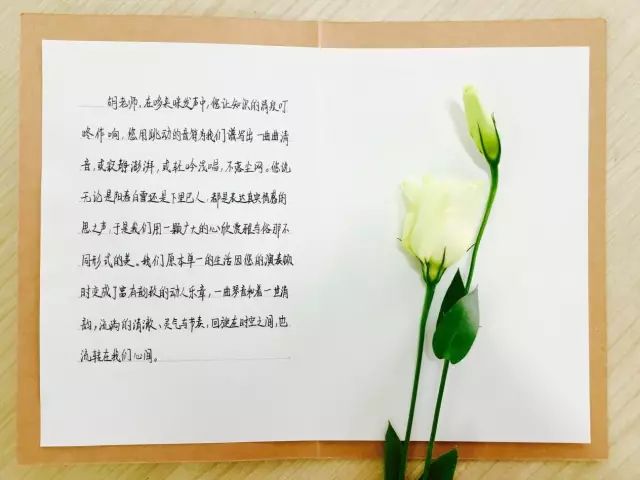 胡老师，在哆来咪发声中，您让知识的清泉叮
咚作响，您用跳动的音符为我们谱写出一曲曲清
音，或寂静澎湃，或轻吟浅唱，不落尘网。您说
无论是阳春白雪还是下里巴人，都是表达真实情感的
思之声，于是我们用一颗广大的心欣赏雅与俗那不
同形式的美。我们原本单一的生活因您的演奏顿
时变成了富有韵致的动人乐章，一曲琴音和着一些清
韵，流淌的清澈、灵气与节奏，回旋在时空之间，也
流转在我们心间。